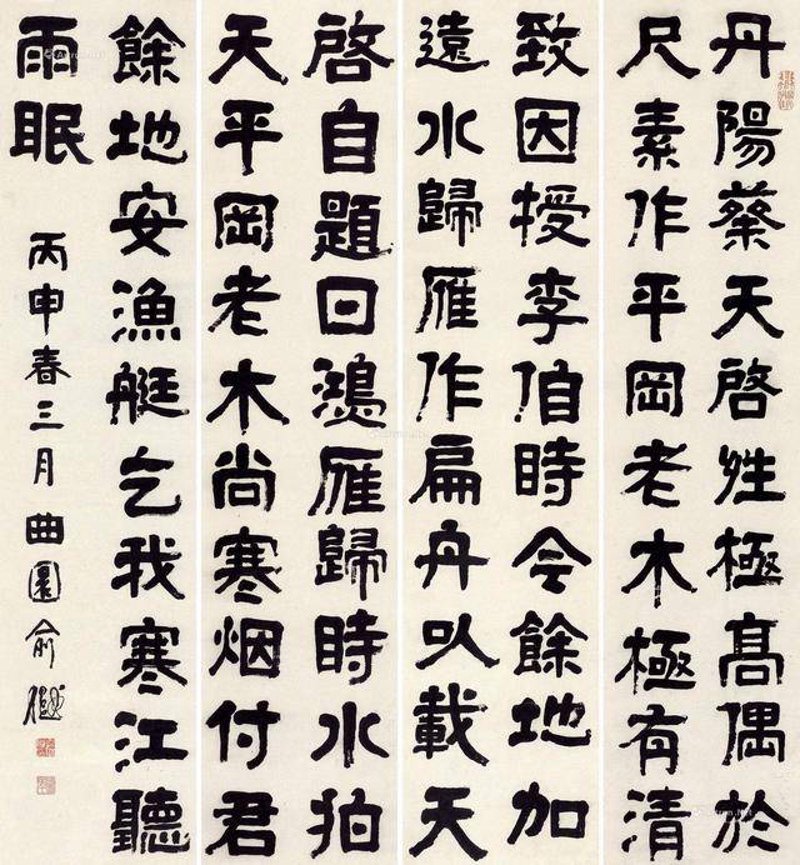 丹陽蔡天啓姓極高偶於
尺素作平岡老木極有清
致因授李伯時令餘地加
遠水歸雁作扁舟以載天
啓自題曰鴻雁歸時水拍
天平岡老木尚寒烟付君
餘地安漁艇乞我寒江聽
雨眠
丙申春三月曲園俞樾